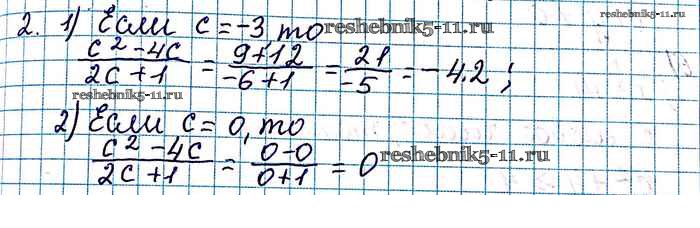 2. 1) Если c = -3, то reshebnik5-11.ru
reshebnik5-11.ru
(c² - 4c)/(2c + 1) = (9+12)/(-6+1) = 21/(-5) = -4.2 ;
reshebnik5-11.ru
2) Если c = 0, то
(c² - 4c)/(2c + 1) = (0-0)/(0+1) = 0 reshebnik5-11.ru
reshebnik5-11.ru